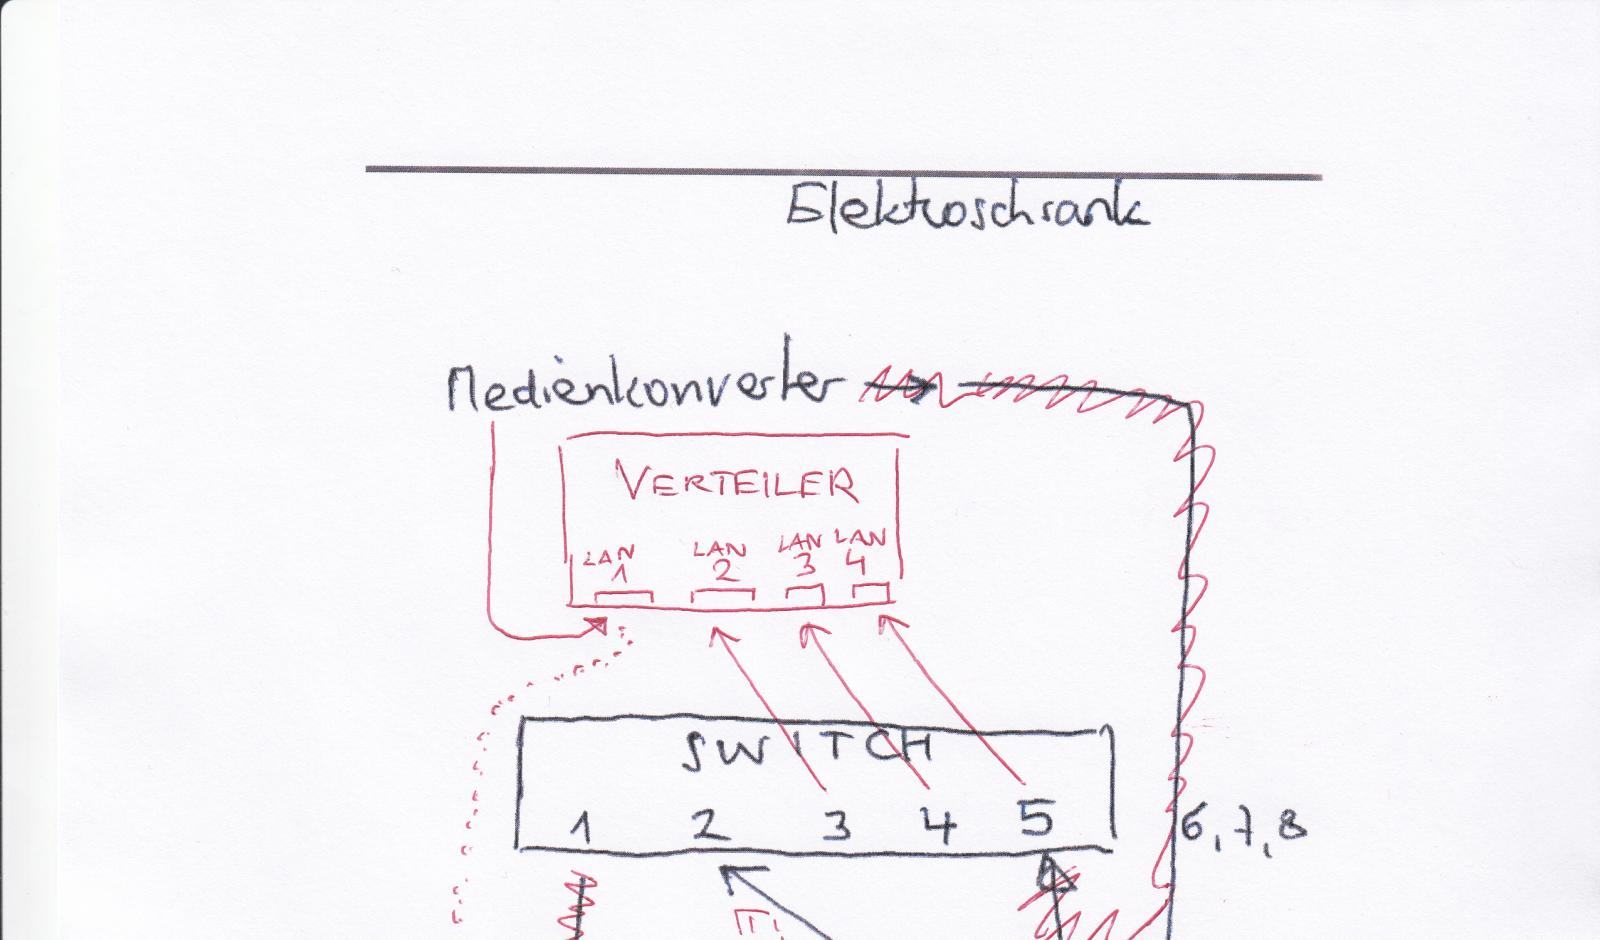 Elektroschrank
Medienkonverter
VERTEILER
LAN 1 LAN 2 LAN 3 LAN 4
SWITCH
1 2 3 4 5 6, 7, 8